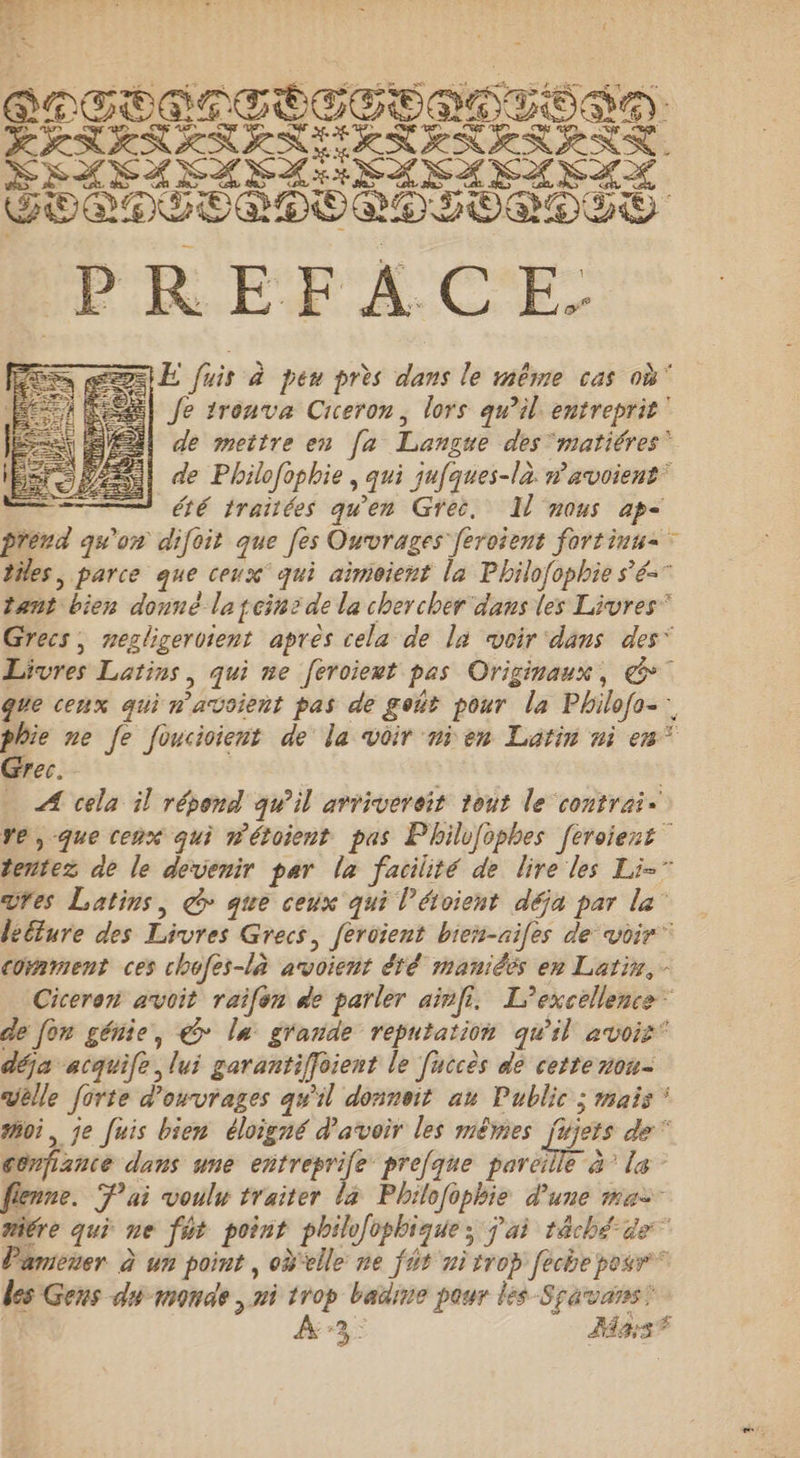 PREFACE.
JE ſuis à peu près dans le même cas où
ſe trouva Ciceron, lors qu'il entreprit
de mettre en ſa Langue des matiéres
de Philoſophie, qui juſques-là n'avoient
été traitées qu'en Grec. Il nous ap-
prend qu'on diſoit que ſes Ouvrages ſeroient fort inu-
tiles, parce que ceux qui aimoient la Philoſophie s'é-
tant bien donné la peine de la chercher dans les Livres
Grecs, negligeroient après cela de la voir dans des
Livres Latins, qui ne ſeroient pas Originaux, &
que ceux qui n'avoient pas de goût pour la Philoſo-
phie ne ſe ſoucioient de la voir ni en Latin ni en
Grec.
A cela il répond qu'il arriveroit tout le contrai-
re, que ceux qui n'étoient pas Philoſophes ſeroient
tentez de le devenir par la facilité de lire les Li-
vres Latins, & que ceux qui l'étoient déja par la
lecture des Livres Grecs, ſeroient bien-aiſes de voir
comment ces choſes-là avoient été maniées en Latin.
Ciceron avoit raiſon de parler ainſi. L'excellence
de ſon génie, & la grande reputation qu'il avoit
déja acquiſe, lui garantiſſoient le ſuccès de cette nou-
velle ſorte d'ouvrages qu'il donnoit au Public ; mais
moi, je ſuis bien éloigné d'avoir les mêmes ſujets de
confiance dans une entrepriſe preſque pareille à la
ſienne. J'ai voulu traiter la Philoſophie d'une ma-
niére qui ne fût point philoſophique ; j'ai tâché de
l'amener à un point, où elle ne fût ni trop ſeche pour
les Gens du monde, ni trop badine pour les Sçavans.
A 3 Mais